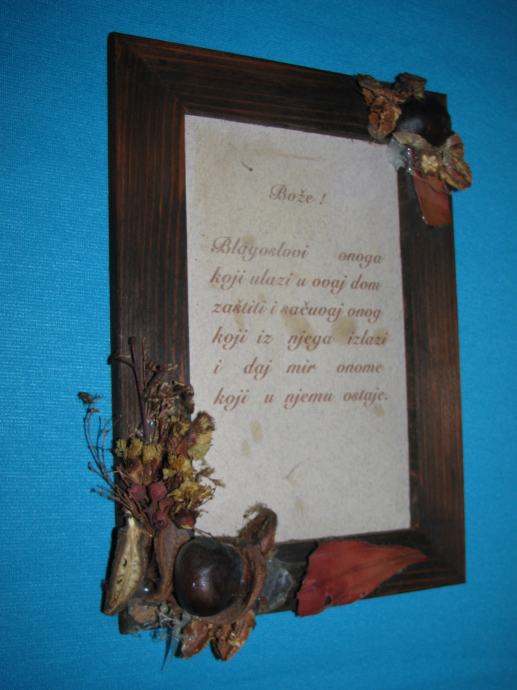 Bože !
Blagoslovi onoga
koji ulazi u ovaj dom
zaštiti i sačuvaj onog
koji iz njega izlazi
i daj mir onome
koji u njemu ostaje.